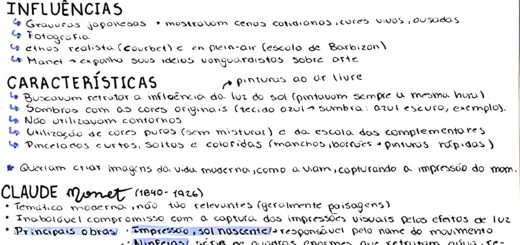 INFLUÊNCIAS
↳ Gravuras japonesas • mostravam cenas cotidianas, cores vivas, ousadas
↳ Fotografia
↳ realista (Courbet) e en plein-air (escola de Barbizon)
↳ Manet → expunha suas ideias vanguardistas sobre arte
CARACTERÍSTICAS → pinturas ao ar livre
↳ Buscavam retratar a influência da luz do sol (pintavam sempre a mesma hora)
↳ Sombras com as cores originais (tecido azul → sombra: azul escuro, exemplo).
↳ Não utilizavam contornos
↳ Utilização de cores puras (sem misturar) e da escala das complementares
↳ Pinceladas curtas, soltas e coloridas (manchas, borrões → pinturas rápidas)
Queriam criar imagens da vida moderna, como a viam, capturando a impressão do mom.
CLAUDE Monet (1840-1926)
• Temática moderna, não tão relevantes (geralmente paisagens)
• Inabalável compromisso com a captura das impressões visuais pelos efeitos de luz
• Principais obras • Impressão, sol nascente → responsável pelo nome do movimento
• Ninfeias série de quadros enormes que retratam